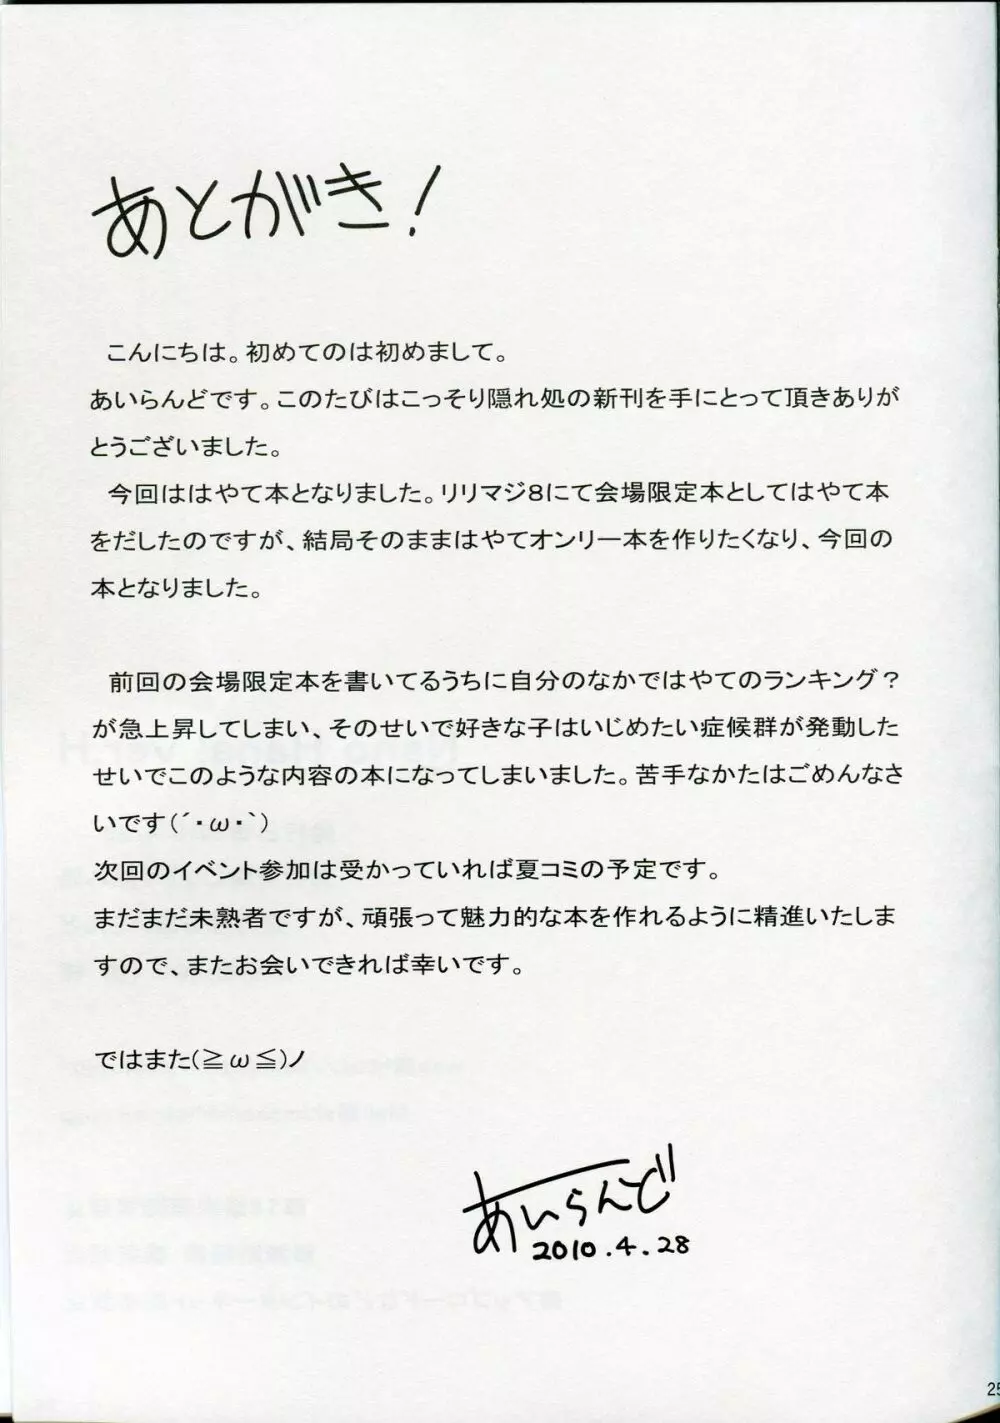 あとがき！
こんにちは。初めてのは初めまして。
あいらんどです。このたびはこっそり隠れ処の新刊を手にとって頂きありが
とうございました。
今回ははやて本となりました。リリマジ８にて会場限定本としてはやて本
をだしたのですが、結局そのままはやてオンリー本を作りたくなり、今回の
本となりました。
前回の会場限定本を書いてるうちに自分のなかではやてのランキング？
が急上昇してしまい、そのせいで好きな子はいじめたい症候群が発動した
せいでこのような内容の本になってしまいました。苦手なかたはごめんなさ
いです（´・ω・｀）
次回のイベント参加は受かっていれば夏コミの予定です。
まだまだ未熟者ですが、頑張って魅力的な本を作れるように精進いたしま
すので、またお会いできれば幸いです。
ではまた(≧ω≦)ノ
あいらんど
2010.4.28
25